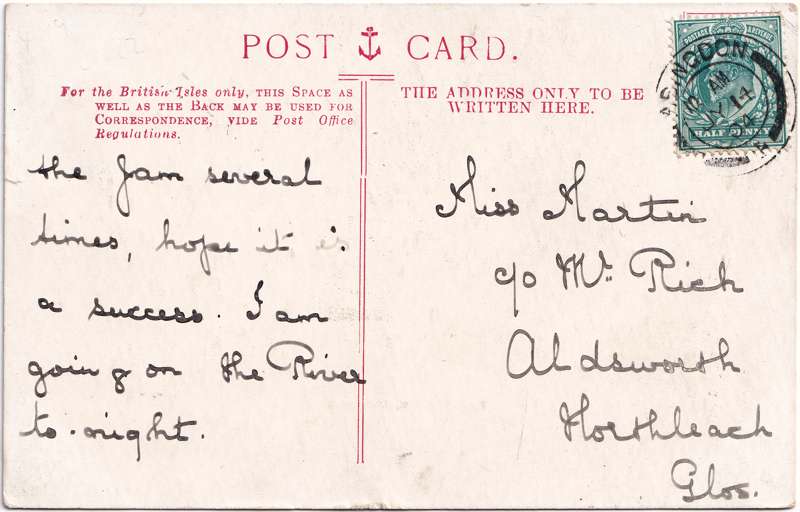 POST CARD.
For the British Isles only, THIS SPACE AS
WELL AS THE BACK MAY BE USED FOR
CORRESPONDENCE, VIDE Post Office
Regulations.
the Jam several
times, hope it is
a success. I am
going on the River
to-night.
THE ADDRESS ONLY TO BE
WRITTEN HERE.
POSTAGE & REVENUE
HALF PENNY
ABINGDON
AM
JY 14
04
Miss Martin
c/o Mr. Rich
Aldsworth
Northleach
Glos.